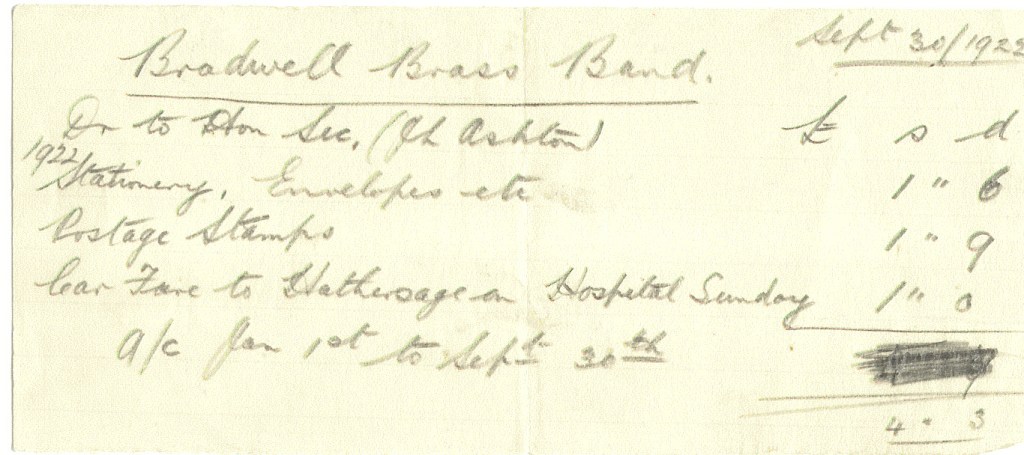 Sept 30/1922
Bradwell Brass Band.
Dr to Hon Sec, (Jh Ashton) £ s d
1922
Stationery, Envelopes etc 1 " 6
Postage Stamps 1 " 9
Car Fare to Hathersage on Hospital Sunday 1 " 0
A/c Jan 1st to Sept 30th
4 " 3